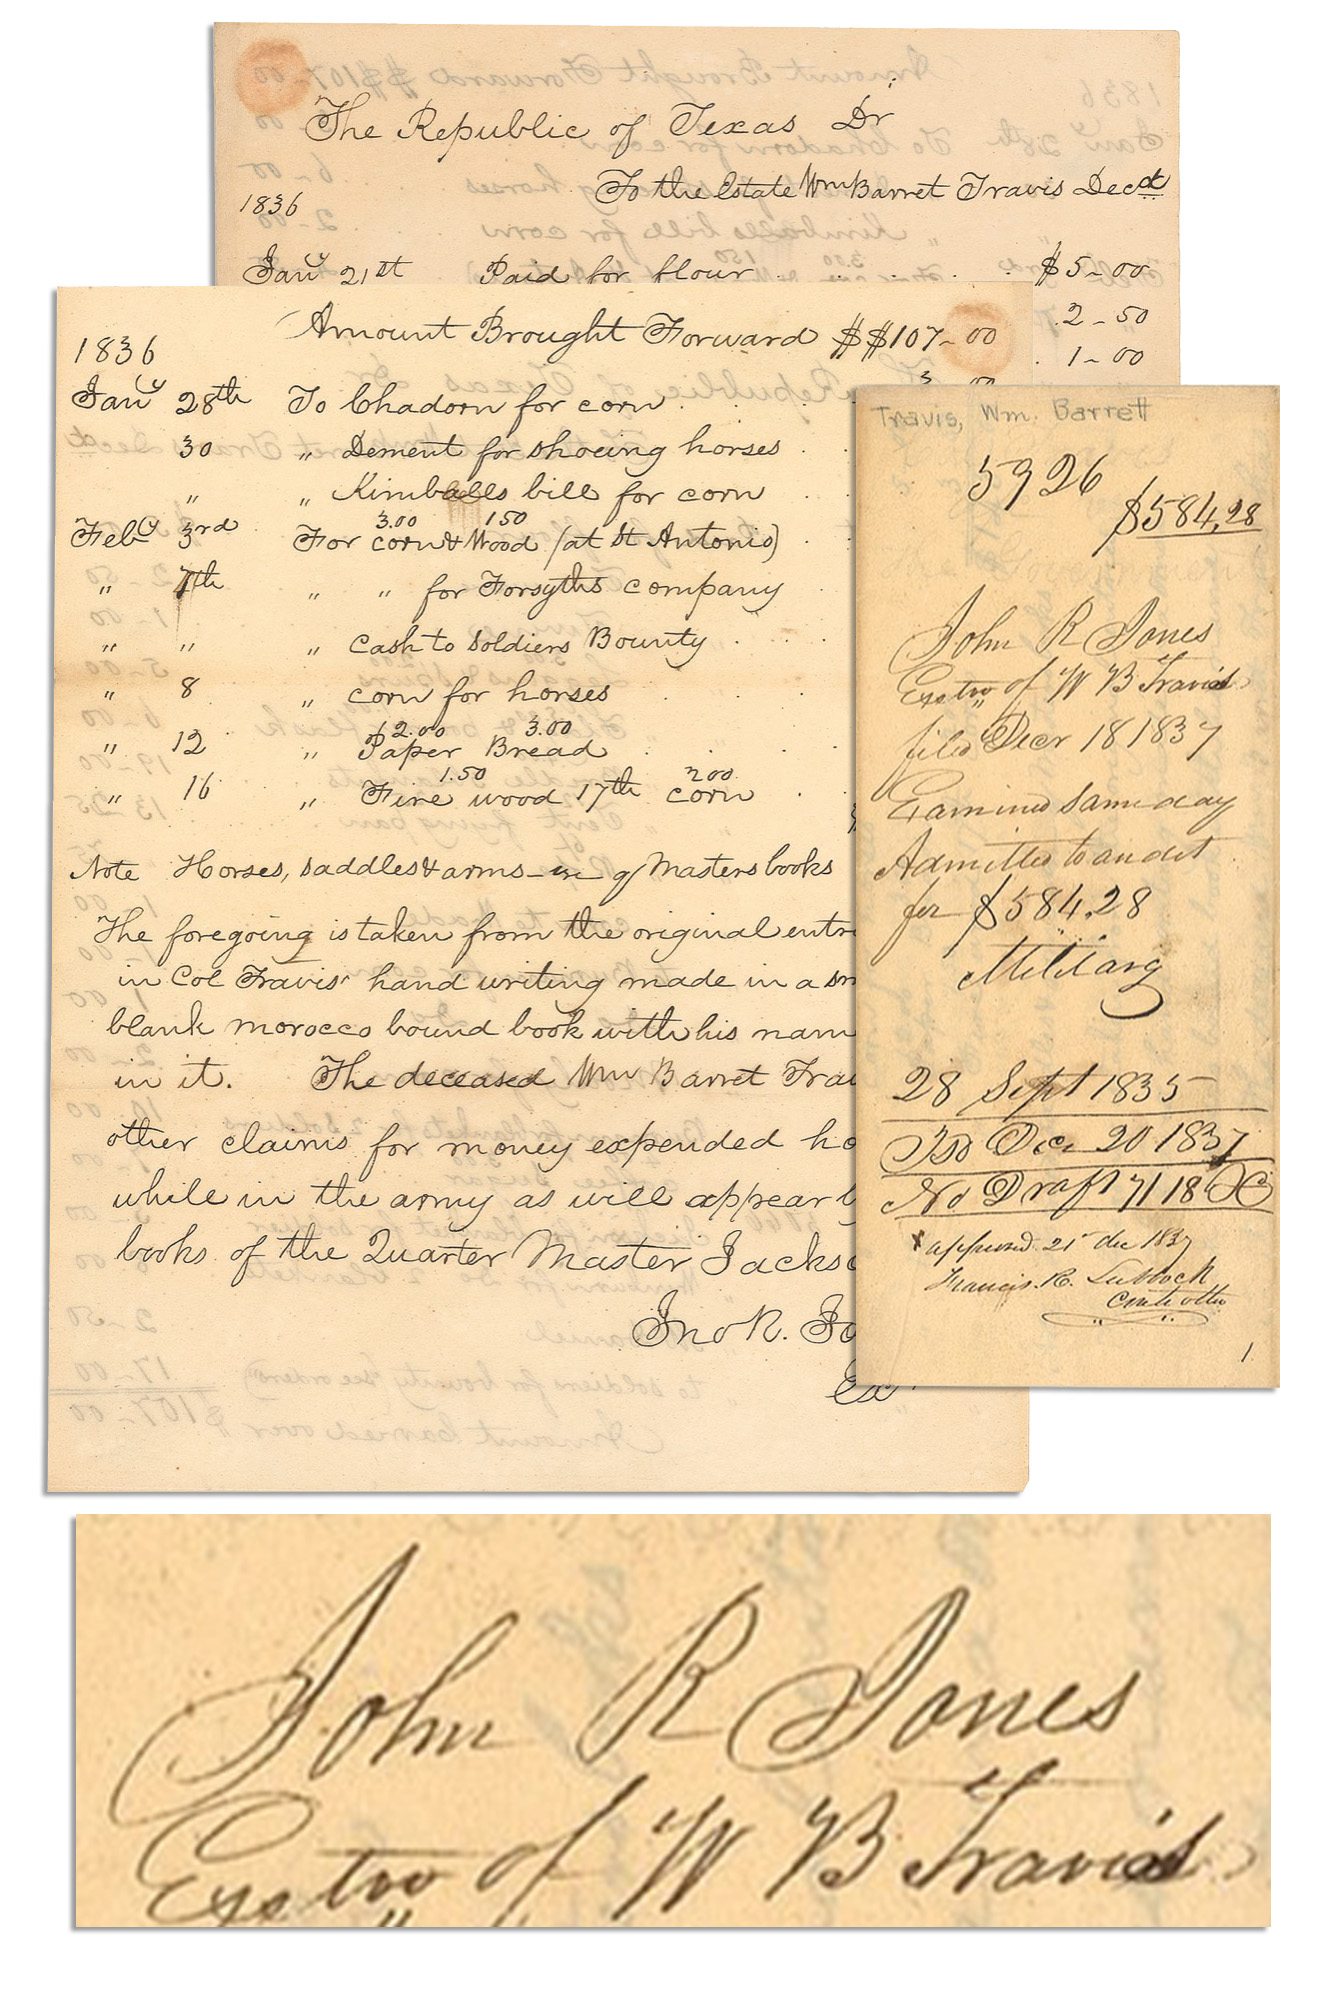 The Republic of Texas Dr
To the Estate Wm Barret Travis Decd
1836
Jany 21st Paid for flour . . . . $5-00
2-50
1-00
Amount Brought Forward $$107-00
1836
Jany 28th To Chadorn for corn .
30 " Dement for shoeing horses .
" " Kimballs bill for corn .
3.00 150
Feby 3rd For corn & Wood (at St Antonio) .
" 7th " " for Forsyths company
" " " Cash to Soldiers Bounty .
" 8 " corn for horses
$2.00 3.00
" 12 " Paper Bread
1.50 200
" 16 " Fire wood 17th corn
Note Horses, saddles & arms - Masters books
The foregoing is taken from the original entr
in Col Travis' hand writing made in a sm
blank morocco bound book with his nam
in it. The deceased Wm Barret Trav
other claims for money expended ho
while in the army as will appear b
books of the Quarter Master Jackso
Jno R. Jo
Exr
Travis, Wm. Barrett
5926
$584,28
John R Jones
Exetro of W B Travis
filed Decr 18 1837
Examined same day
Admitted to audit
for $584.28
Military
28 Sept 1835
To Dec 20 1837
No Draft 7118
approved 21 dec 1837
Francis. R. Lubbock
Controller
1
John R Jones
Exetro of W B Travis